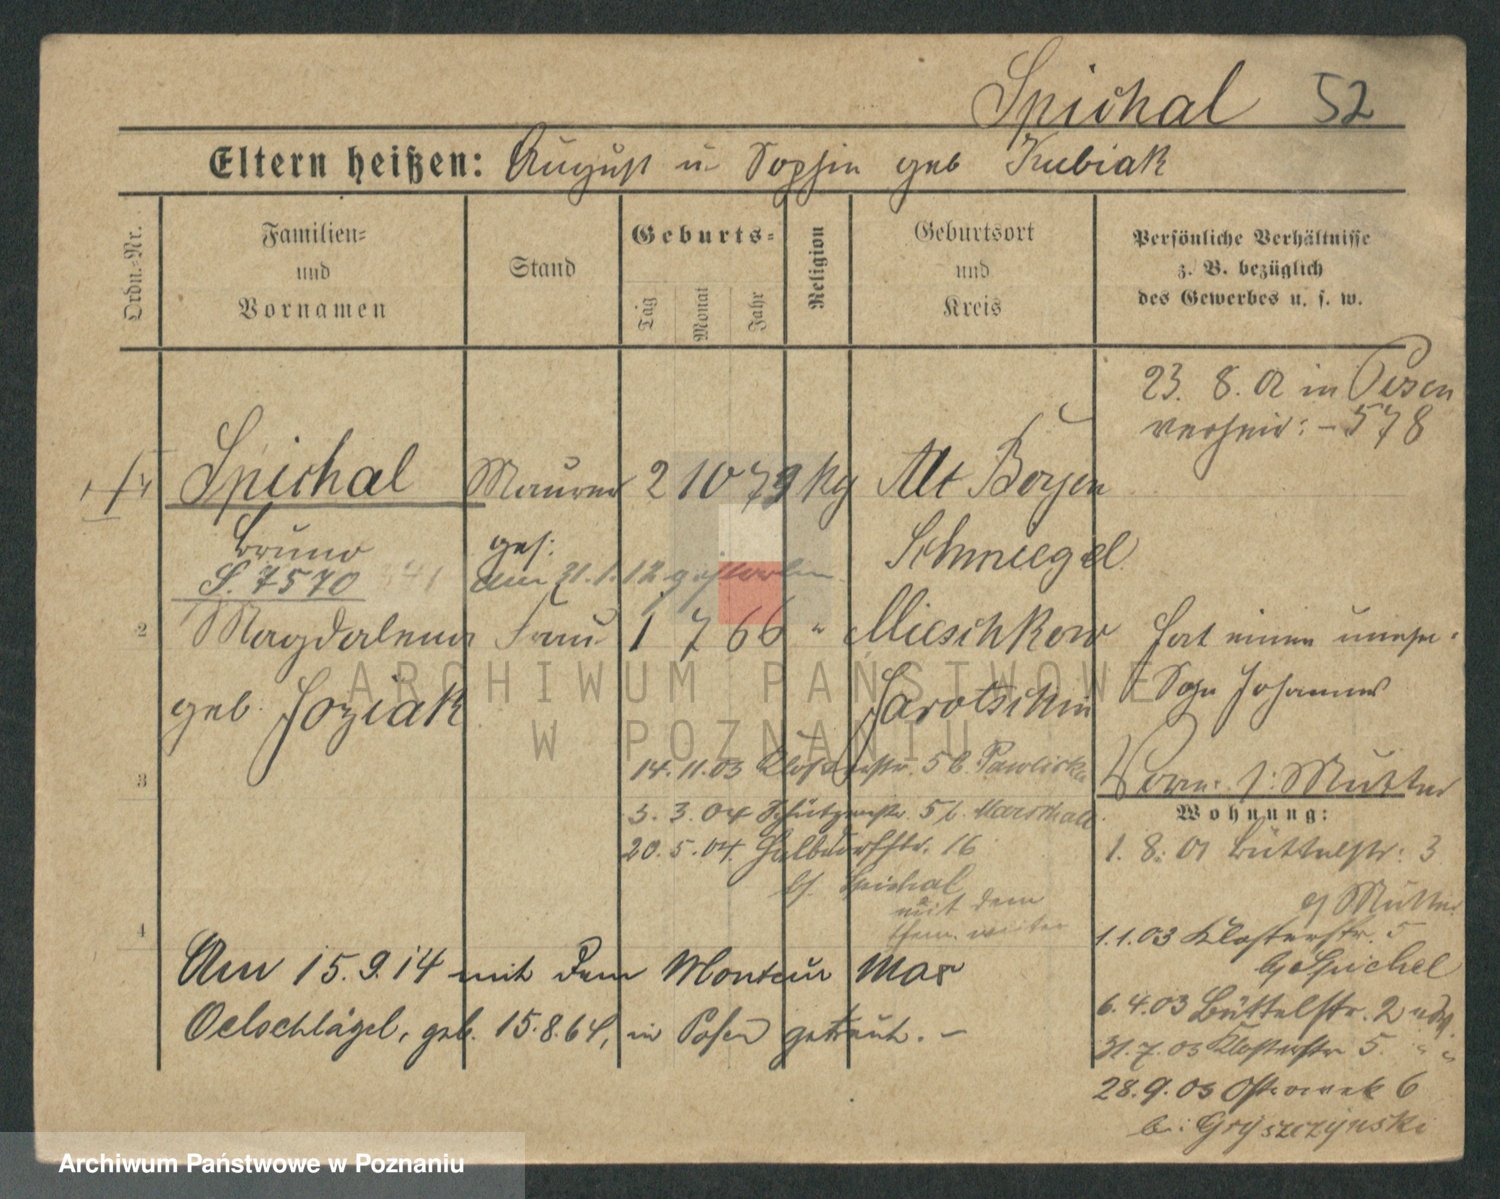 Spichal 52
Eltern heißen: August u Sophie geb Kubiak
Ordn.-Nr.
Familien-
und
Vornamen
Stand
Geburts-
Tag
Monat
Jahr
Religion
Geburtsort
und
Kreis
Persönliche Verhältnisse
z. B. bezüglich
des Gewerbes u. s. w.
23. 8. 01 in Posen
verheir: - 578
Spichal Maurer 2 10 79 kg Alt Boyen
Bruno ges: Schmiegel
S. 7570 am 31.1.12 gestorben
2 Magdalena Frau 1 7 66 " Mieschkow hat einen unehe-
geb. Joziak Jarotschin Sohn Johannes
14.11.03 Klosterstr. 5 b.
Vorm. s: Mutter
3
Wohnung:
3.3.04 Schützenstr. 5 b.
20.5.04 Halbdorfstr. 16
1. 8. 01 Büttelstr. 3
bj. Spichal
mit dem
weiter
bj Mutter
4
1.1.03 Klosterstr. 5
bj Spichel
Am 15.9.14 mit dem Monteur Max
Oelschlägel, geb. 15.8.64, in Posen getraut. -
6.4.03 Büttelstr. 2
31.7.03 Klosterstr 5 " "
28.9.03 Ostrowek 6
bei Gryszczynski
ARCHIWUM PAŃSTWOWE
W POZNANIU
Archiwum Państwowe w Poznaniu